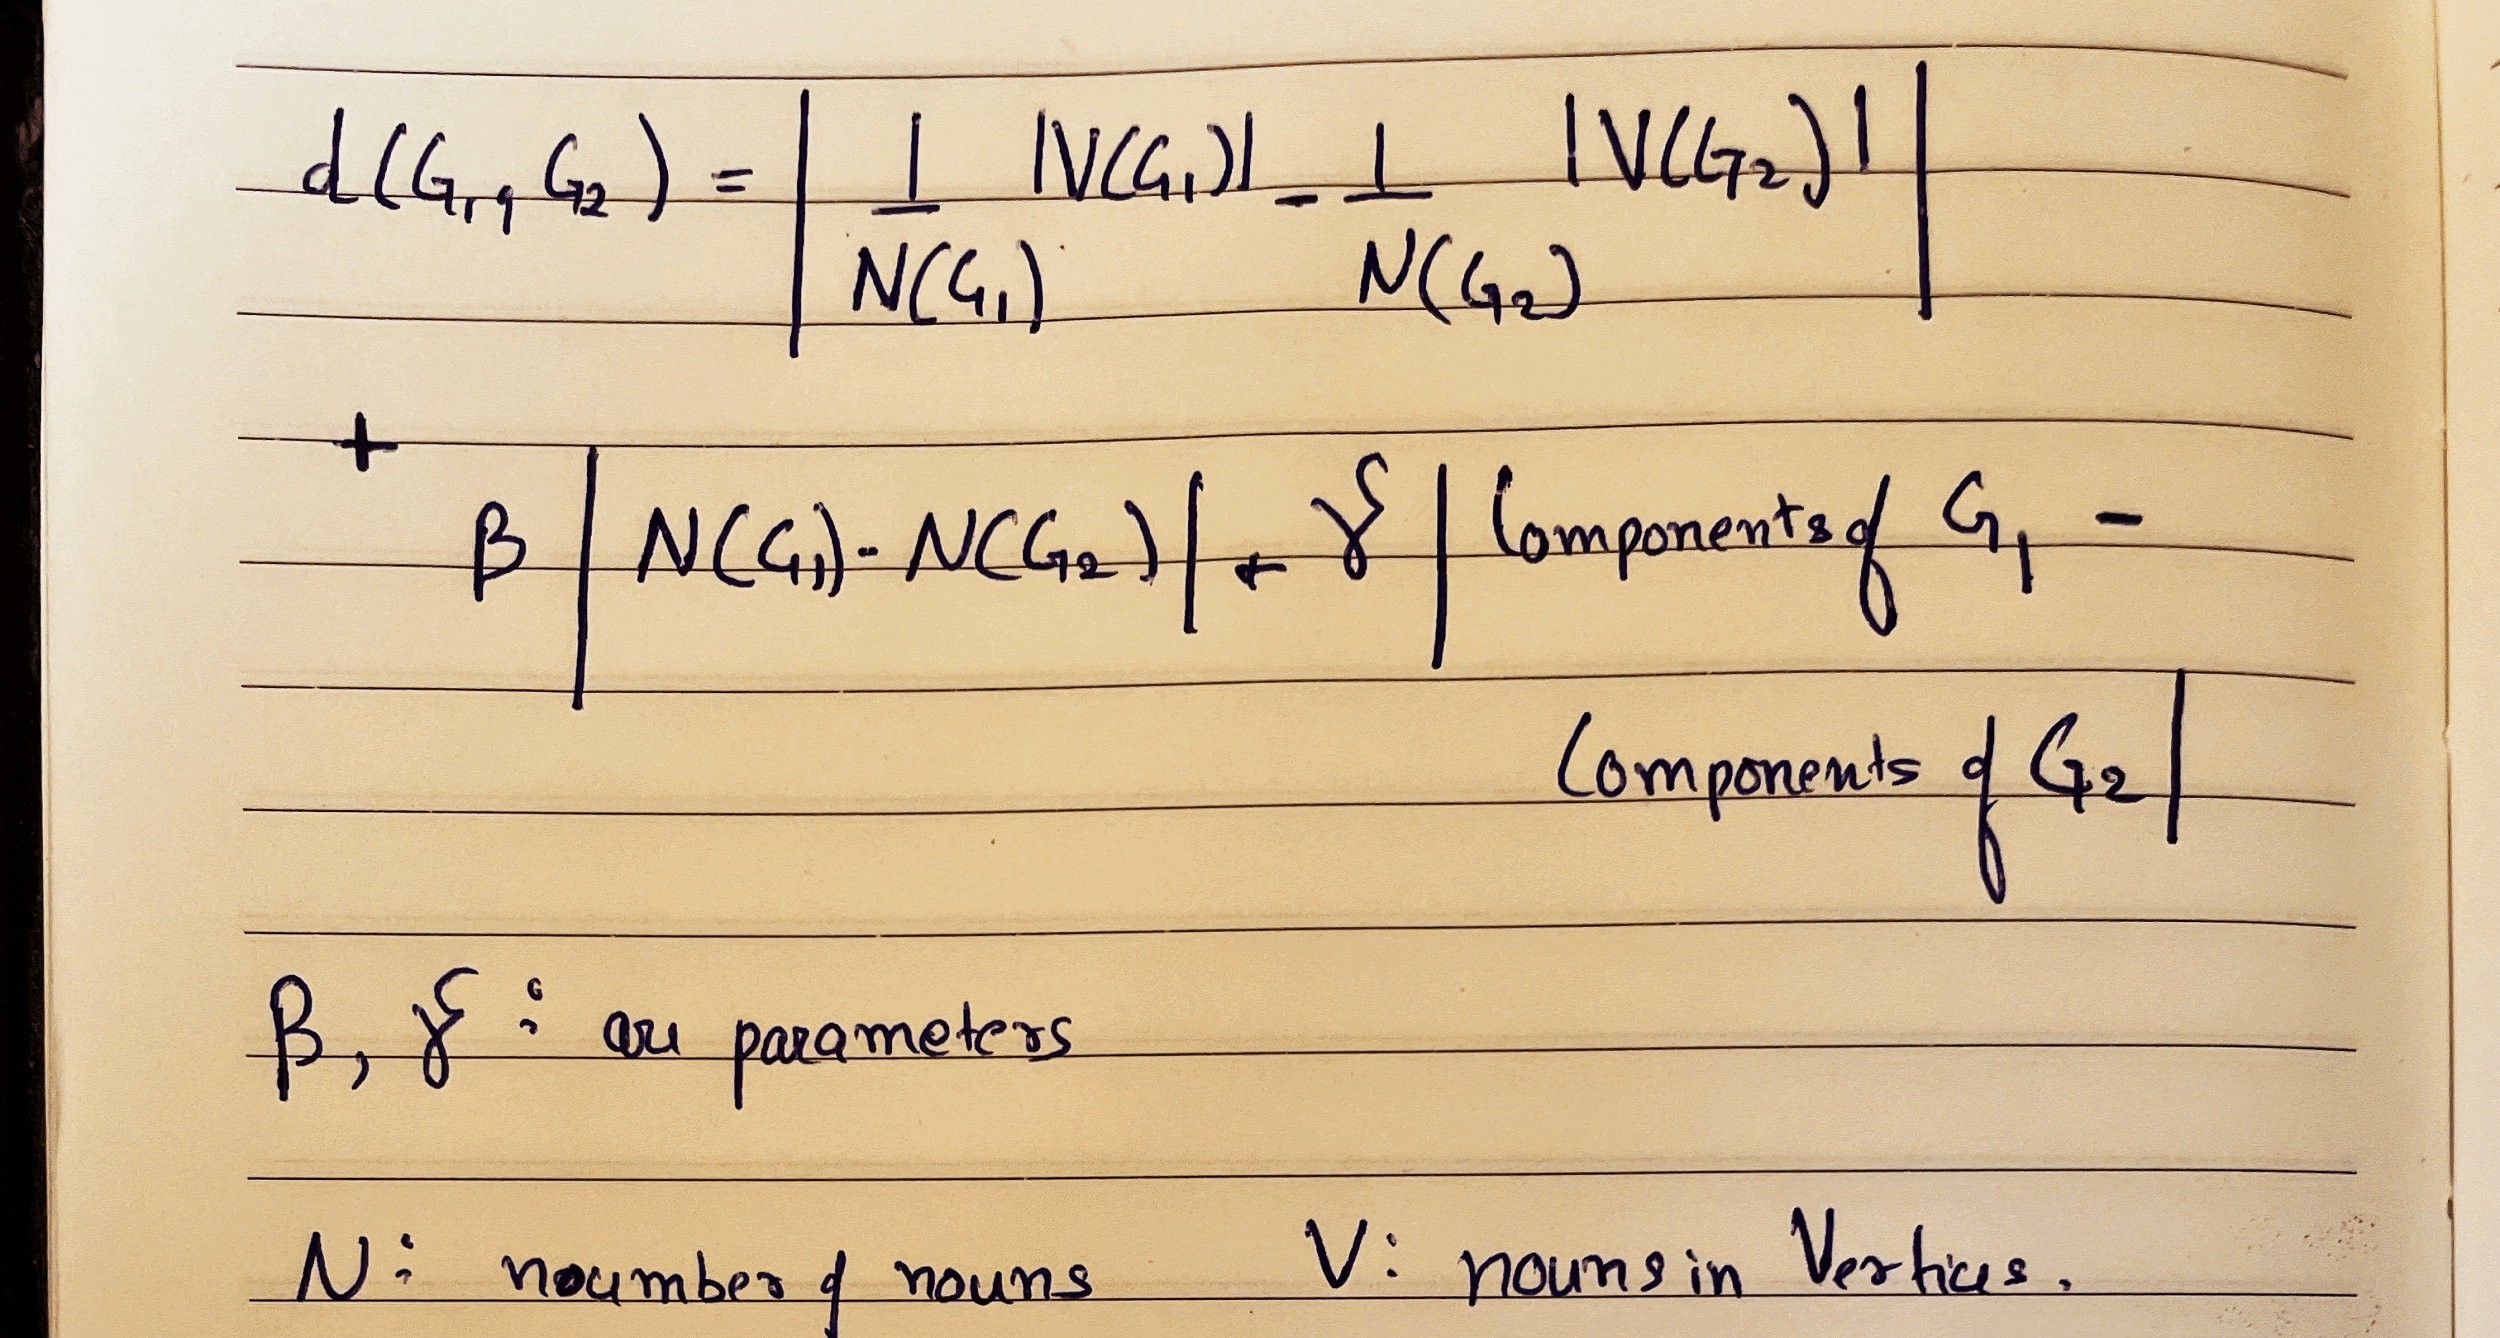 d(G₁, G₂) = | 1/N(G₁) |V(G₁)| - 1/N(G₂) |V(G₂)| |
+
β | N(G₁) - N(G₂) | + γ | Components of G₁ -
Components of G₂ |
β, γ : are parameters
N : noumber of nouns V : nouns in Vertices.